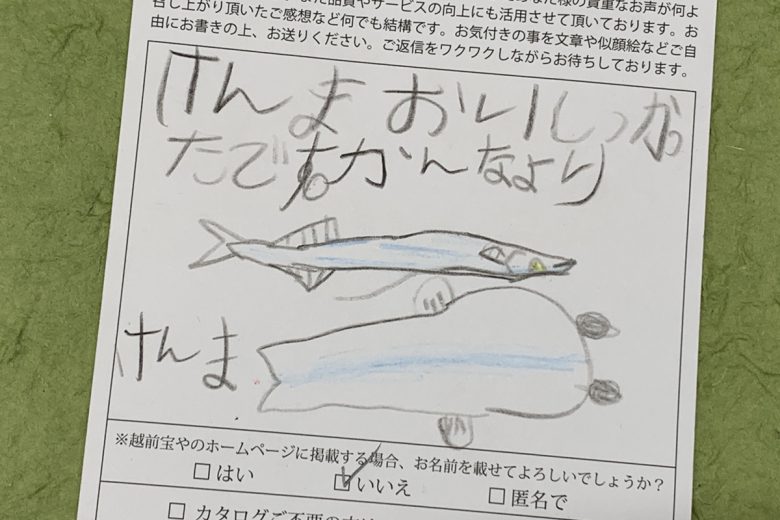 た様の貴重なお声が何よ
た品質やサービスの向上にも活用させて頂いております。お
召し上がり頂いたご感想など何でも結構です。お気付きの事を文章や似顔絵などご自
由にお書きの上、お送りください。ご返信をワクワクしながらお待ちしております。
けんま おいしっか
たです。かんなより
けんま
※越前宝やのホームページに掲載する場合、お名前を載せてよろしいでしょうか？
□はい ☑いいえ □匿名で
□ カタログご不要の方は